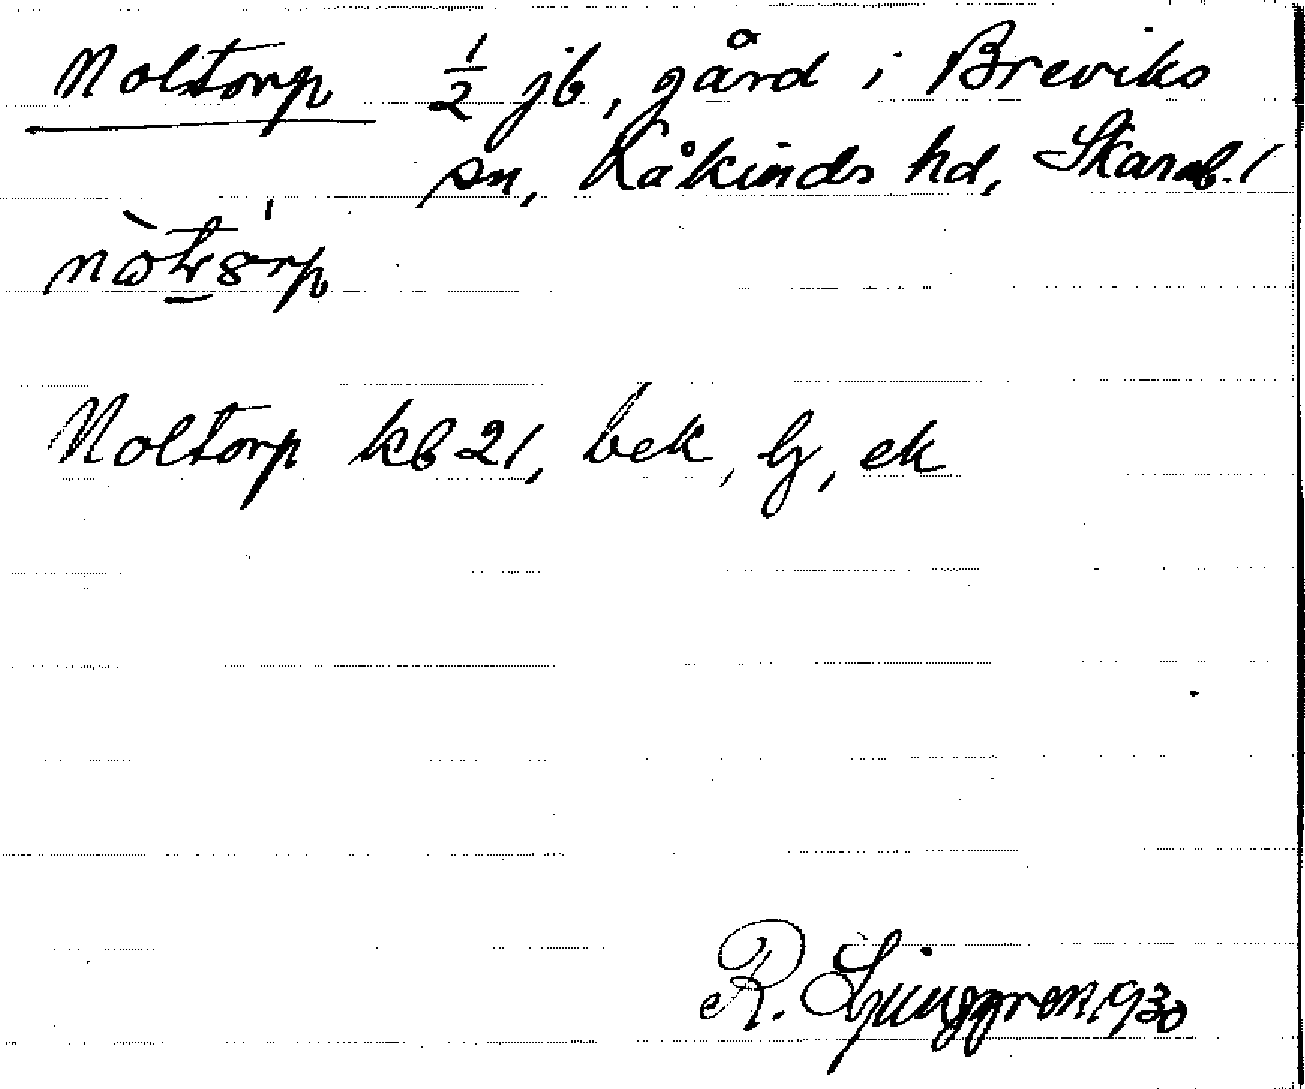 Noltorp ½ jb, gård i Breviks
sn, Kåkinds hd, Skarab. l
Noltorp kb 21, bek, lj, ek
R. Ljunggren 1930